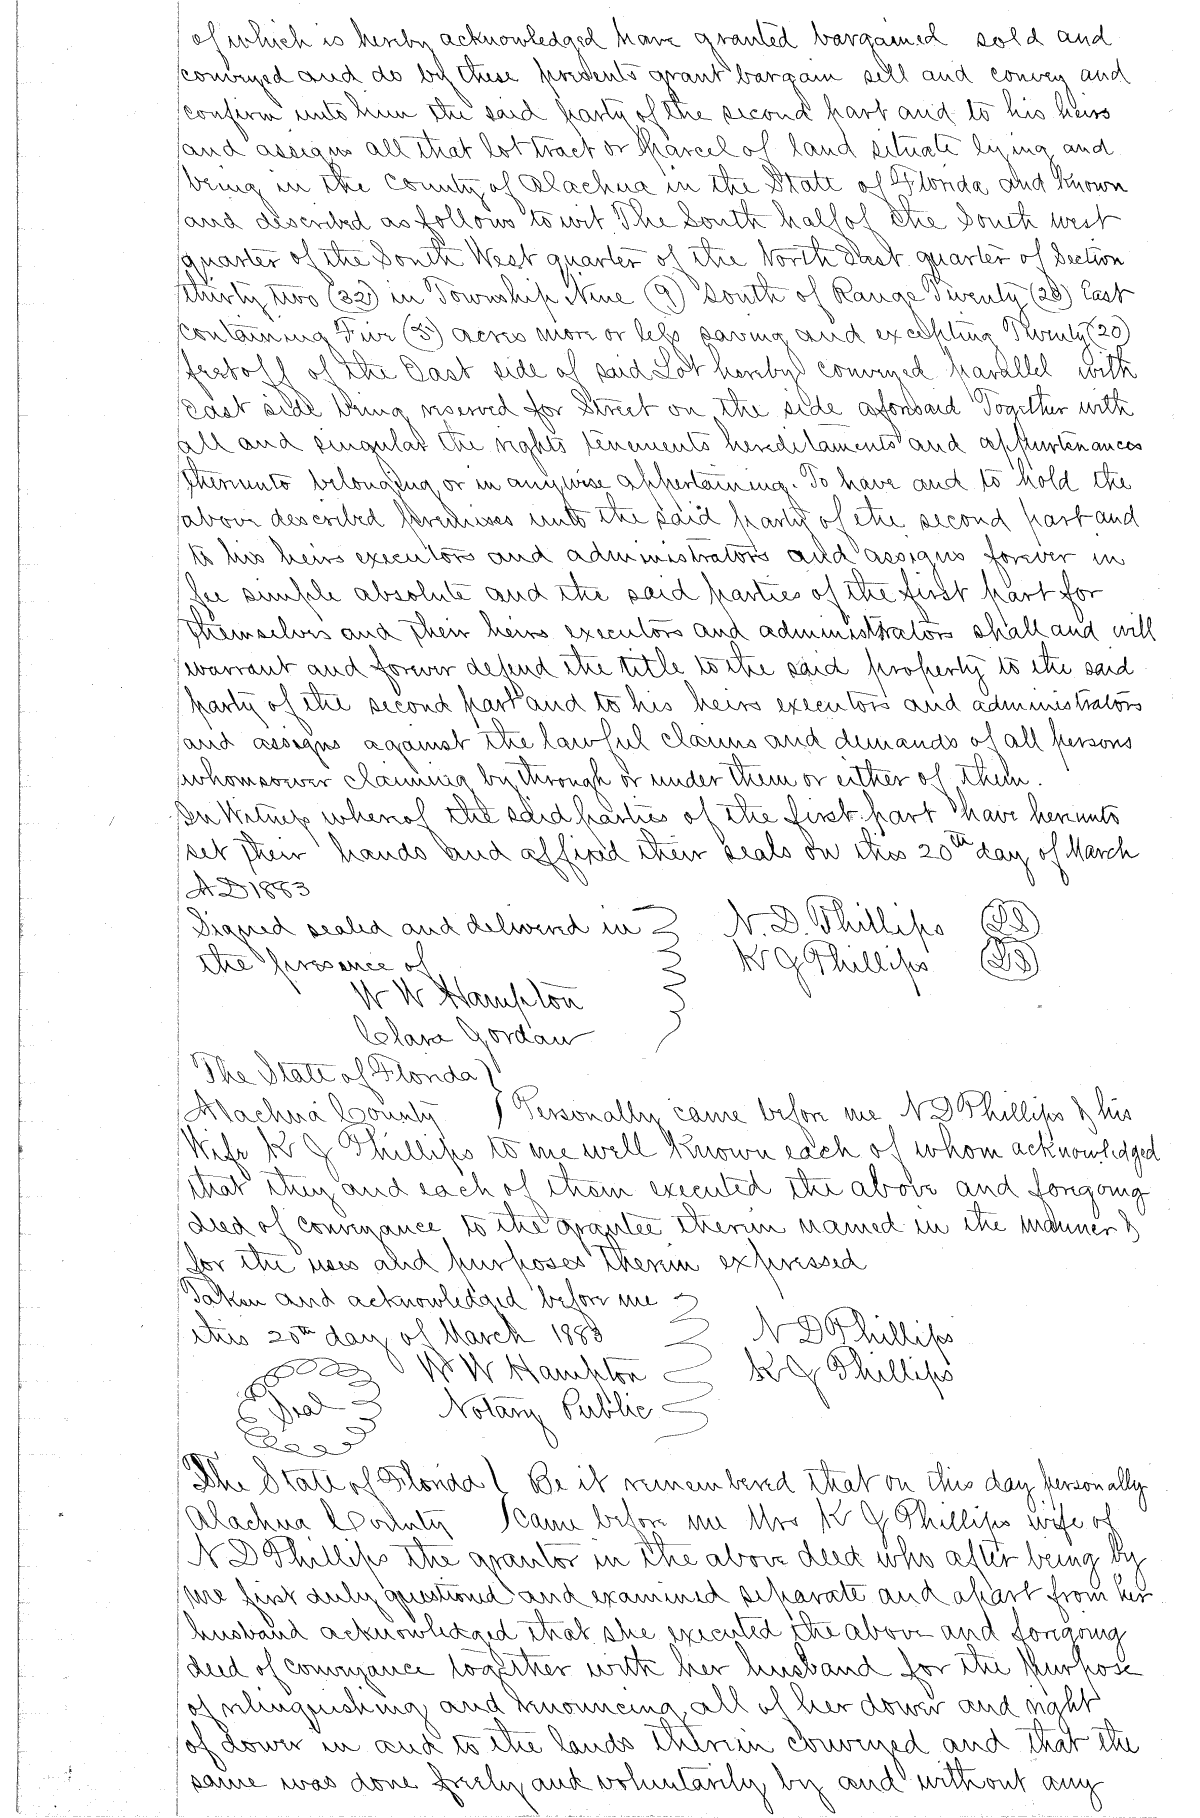 of which is hereby acknowledged have granted bargained sold and
conveyed and do by these presents grant bargain sell and convey and
confirm unto him the said party of the second part and to his heirs
and assigns all that lot tract or parcel of land situate lying and
being in the County of Alachua in the State of Florida and known
and described as follows to wit The South half of the South west
quarter of the South West quarter of the North East quarter of Section
thirty two (32) in Township Nine (9) South of Range Twenty (20) East
containing Five (5) acres more or less saving and excepting Twenty (20)
feet off of the East side of said Lot hereby conveyed parallel with
East side being reserved for Street on the side aforesaid Together with
all and singular the rights tenements hereditaments and appurtenances
thereunto belonging or in anywise appertaining. To have and to hold the
above described premises unto the said party of the second part and
to his heirs executors and administrators and assigns forever in
fee simple absolute and the said parties of the first part for
themselves and their heirs executors and administrators shall and will
warrant and forever defend the title to the said property to the said
party of the second part and to his heirs executors and administrators
and assigns against the lawful claims and demands of all persons
whomsoever claiming by through or under them or either of them.
In Witness whereof the said parties of the first part have hereunto
set their hands and affixed their seals on this 20th day of March
A D 1883
Signed sealed and delivered in N. D. Phillips LS
the presence of K G Phillips LS
W W Hampton
Clara Gordan
The State of Florida
Alachua County } Personally came before me N D Phillips & his
Wife K G Phillips to me well known each of whom acknowledged
that they and each of them executed the above and foregoing
deed of conveyance to the grantee therein named in the manner &
for the uses and purposes therein expressed
Taken and acknowledged before me
this 20th day of March 1883 N D Phillips
W W Hampton K G Phillips
Seal Notary Public
The State of Florida } Be it remembered that on this day personally
Alachua County } came before me Mrs K G Phillips wife of
N D Phillips the grantor in the above deed who after being by
me first duly questioned and examined separate and apart from her
husband acknowledged that she executed the above and foregoing
deed of conveyance together with her husband for the purpose
of relinquishing and renouncing all of her dower and right
of dower in and to the lands therein conveyed and that the
same was done freely and voluntarily by and without any